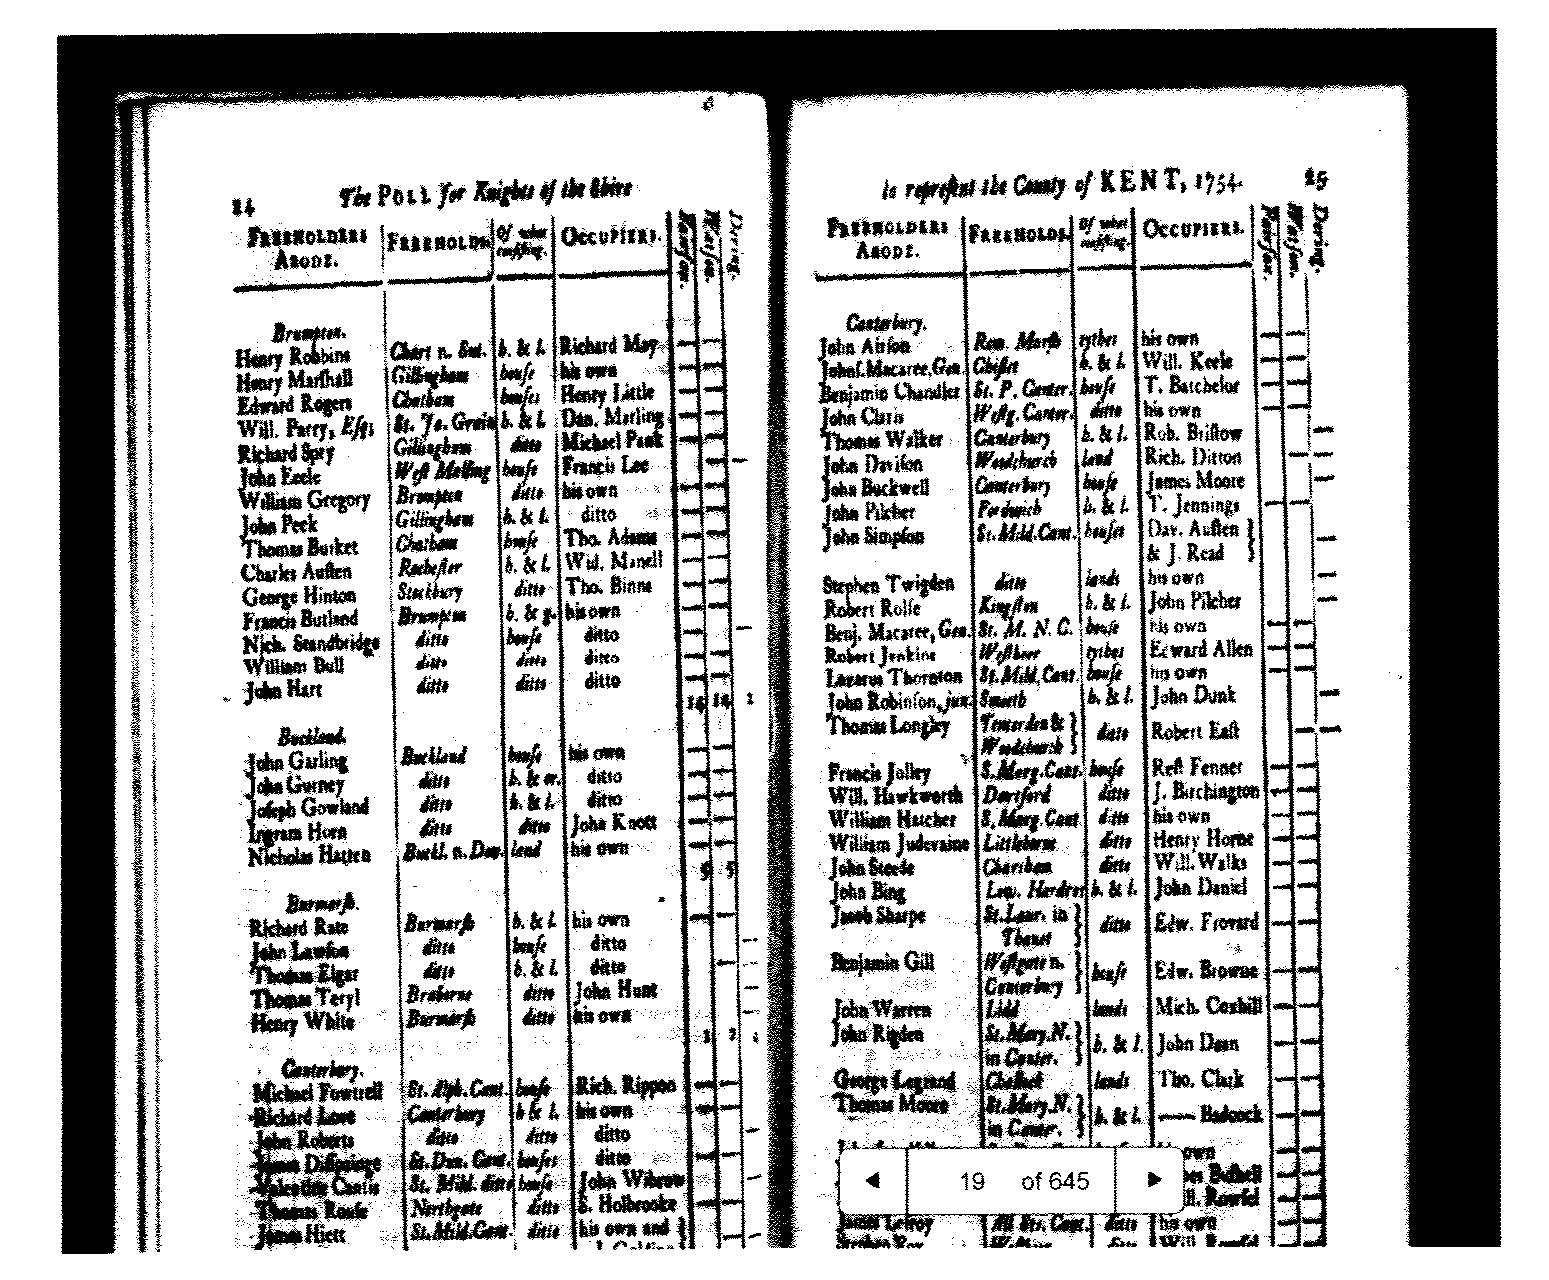 24 The POLL for Knights of the Shire
FREEHOLDERS ABODE. FREEHOLDS. Of what consisting. OCCUPIERS. Fairfax. Watson. Dering.
Brumpton.
Henry Robbins Chart n. Sut. h. & l. Richard May — —
Henry Marshall Gillingham house his own — —
Edward Rogers Chatham houses Henry Little — —
Will. Parry, Esq; St. Ja. Grain h. & l. Dan. Marling — —
Richard Spry Gillingham ditto Michael Pank — —
John Eeele West Malling house Francis Lee — —
William Gregory Brompton ditto his own — —
John Peck Gillingham h. & l. ditto — —
Thomas Burket Chatham house Tho. Adams — —
Charles Austen Rochester h. & l. Wid. Manell — —
George Hinton Stockbury ditto Tho. Binns — —
Francis Butland Brumpton h. & g. his own — —
Nich. Standbridge ditto house ditto — —
William Bull ditto ditto ditto — —
John Hart ditto ditto ditto — —
14 14 1
Buckland.
John Garling Buckland house his own — —
John Gurney ditto h. & or. ditto — —
Joseph Gowland ditto h. & l. ditto — —
Ingram Horn ditto ditto John Knott — —
Nicholas Hatten Buckl. n. Dov. land his own — —
5 5
Burmarsh.
Richard Rate Burmarsh h. & l. his own — —
John Lawson ditto house ditto —
Thomas Elgar ditto h. & l. ditto — —
Thomas Teryl Braborne ditto John Hunt —
Henry White Burmarsh ditto his own —
1 2
Canterbury.
Michael Fowtrell St. Alph. Cant. house Rich. Rippon — —
Richard Lowe Canterbury h & l. his own — —
John Roberts ditto ditto ditto —
James St. Dun. Cant. houses ditto — —
Valentine St. Mild. ditto house John Wibrow —
Thomas Rouse Northgate ditto S. Holbrooke — —
James Hiett St. Mild. Cant. ditto his own and } — —
to represent the County of KENT, 1754. 25
FREEHOLDERS ABODE. FREEHOLDS. Of what consisting. OCCUPIERS. Fairfax. Watson. Dering.
Canterbury.
John Airson Rom. Marsh tythes his own — —
Johnſ. Macaree, Gen. Chislet h. & l. Will. Keele — —
Benjamin Chandler St. P. Canter. house T. Batchelor — —
John Claris Westg. Canter. ditto his own — —
Thomas Walker Canterbury h. & l. Rob. Bristow —
John Davison Woodchurch land Rich. Ditton — —
John Buckwell Canterbury house James Moore —
John Pilcher Fordwich h. & l. T. Jennings — —
John Simpson St. Mild. Cant. houses Dav. Austen }
& J. Read } —
Stephen Twigden ditto lands his own —
Robert Rolfe Kingston h. & l. John Pilcher —
Benj. Macaree, Gen. St. M. N. C. house his own — —
Robert Jenkins Westbeer tythes Edward Allen — —
Lazarus Thornton St. Mild. Cant. house his own — —
John Robinson, jun. Smeeth h. & l. John Dunk —
Thomas Longley Tenterden & } Woodchurch } ditto Robert East — —
Francis Jolley S. Marg. Cant. house Rest Fenner — —
Will. Hawkworth Dartford ditto J. Birchington — —
William Hatcher S. Marg. Cant ditto his own — —
William Judevaine Littleborne ditto Henry Horne — —
John Steede Chartham ditto Will. Walks — —
John Bing Low. Hardres h. & l. John Daniel — —
Jacob Sharpe St. Laur. in } Thanet } ditto Edw. Frovard — —
Benjamin Gill Westgate n. } Canterbury } house Edw. Browne — —
John Warren Lidd lands Mich. Coxhill — —
John Rigden St. Mary. N. } in Canter. } h. & l. John Dean — —
George Legrand Challock lands Tho. Clark — —
Thomas Moore St. Mary. N. } in Canter. } h. & l. — Badcock — —
own — —
Bushell — —
ll. Rousel — —
James Leroy All Sts. Cant. ditto his own — —
Stephen Fox ditto Will. Rousel — —
19 of 645